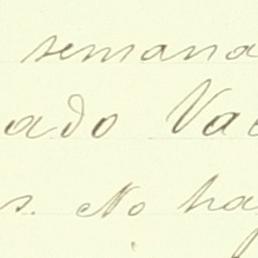 semana
ado Va
s. No hay